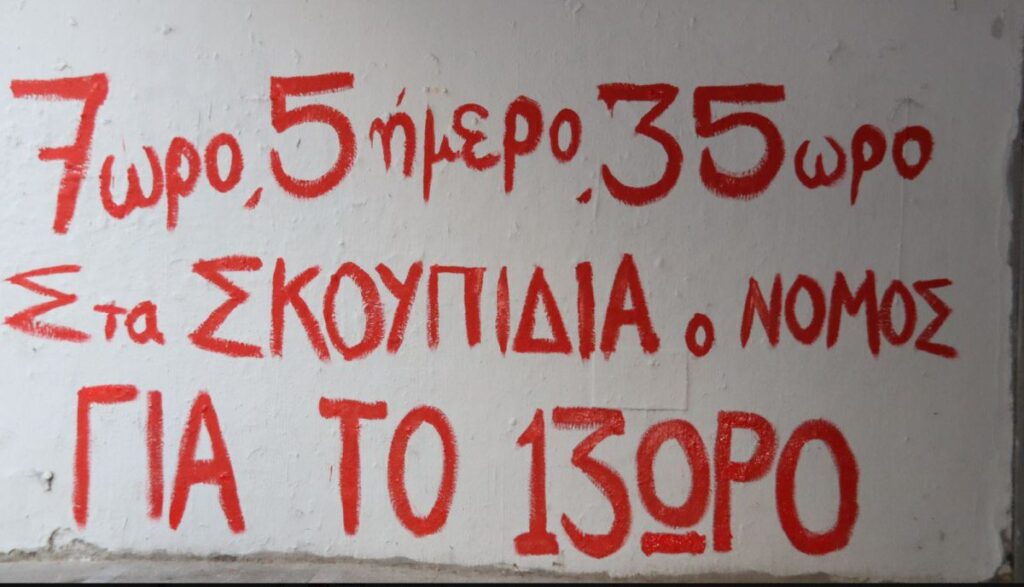 7ωρο, 5ήμερο, 35ωρο
Στα ΣΚΟΥΠΙΔΙΑ ο ΝΟΜΟΣ
ΓΙΑ ΤΟ 13ΩΡΟ